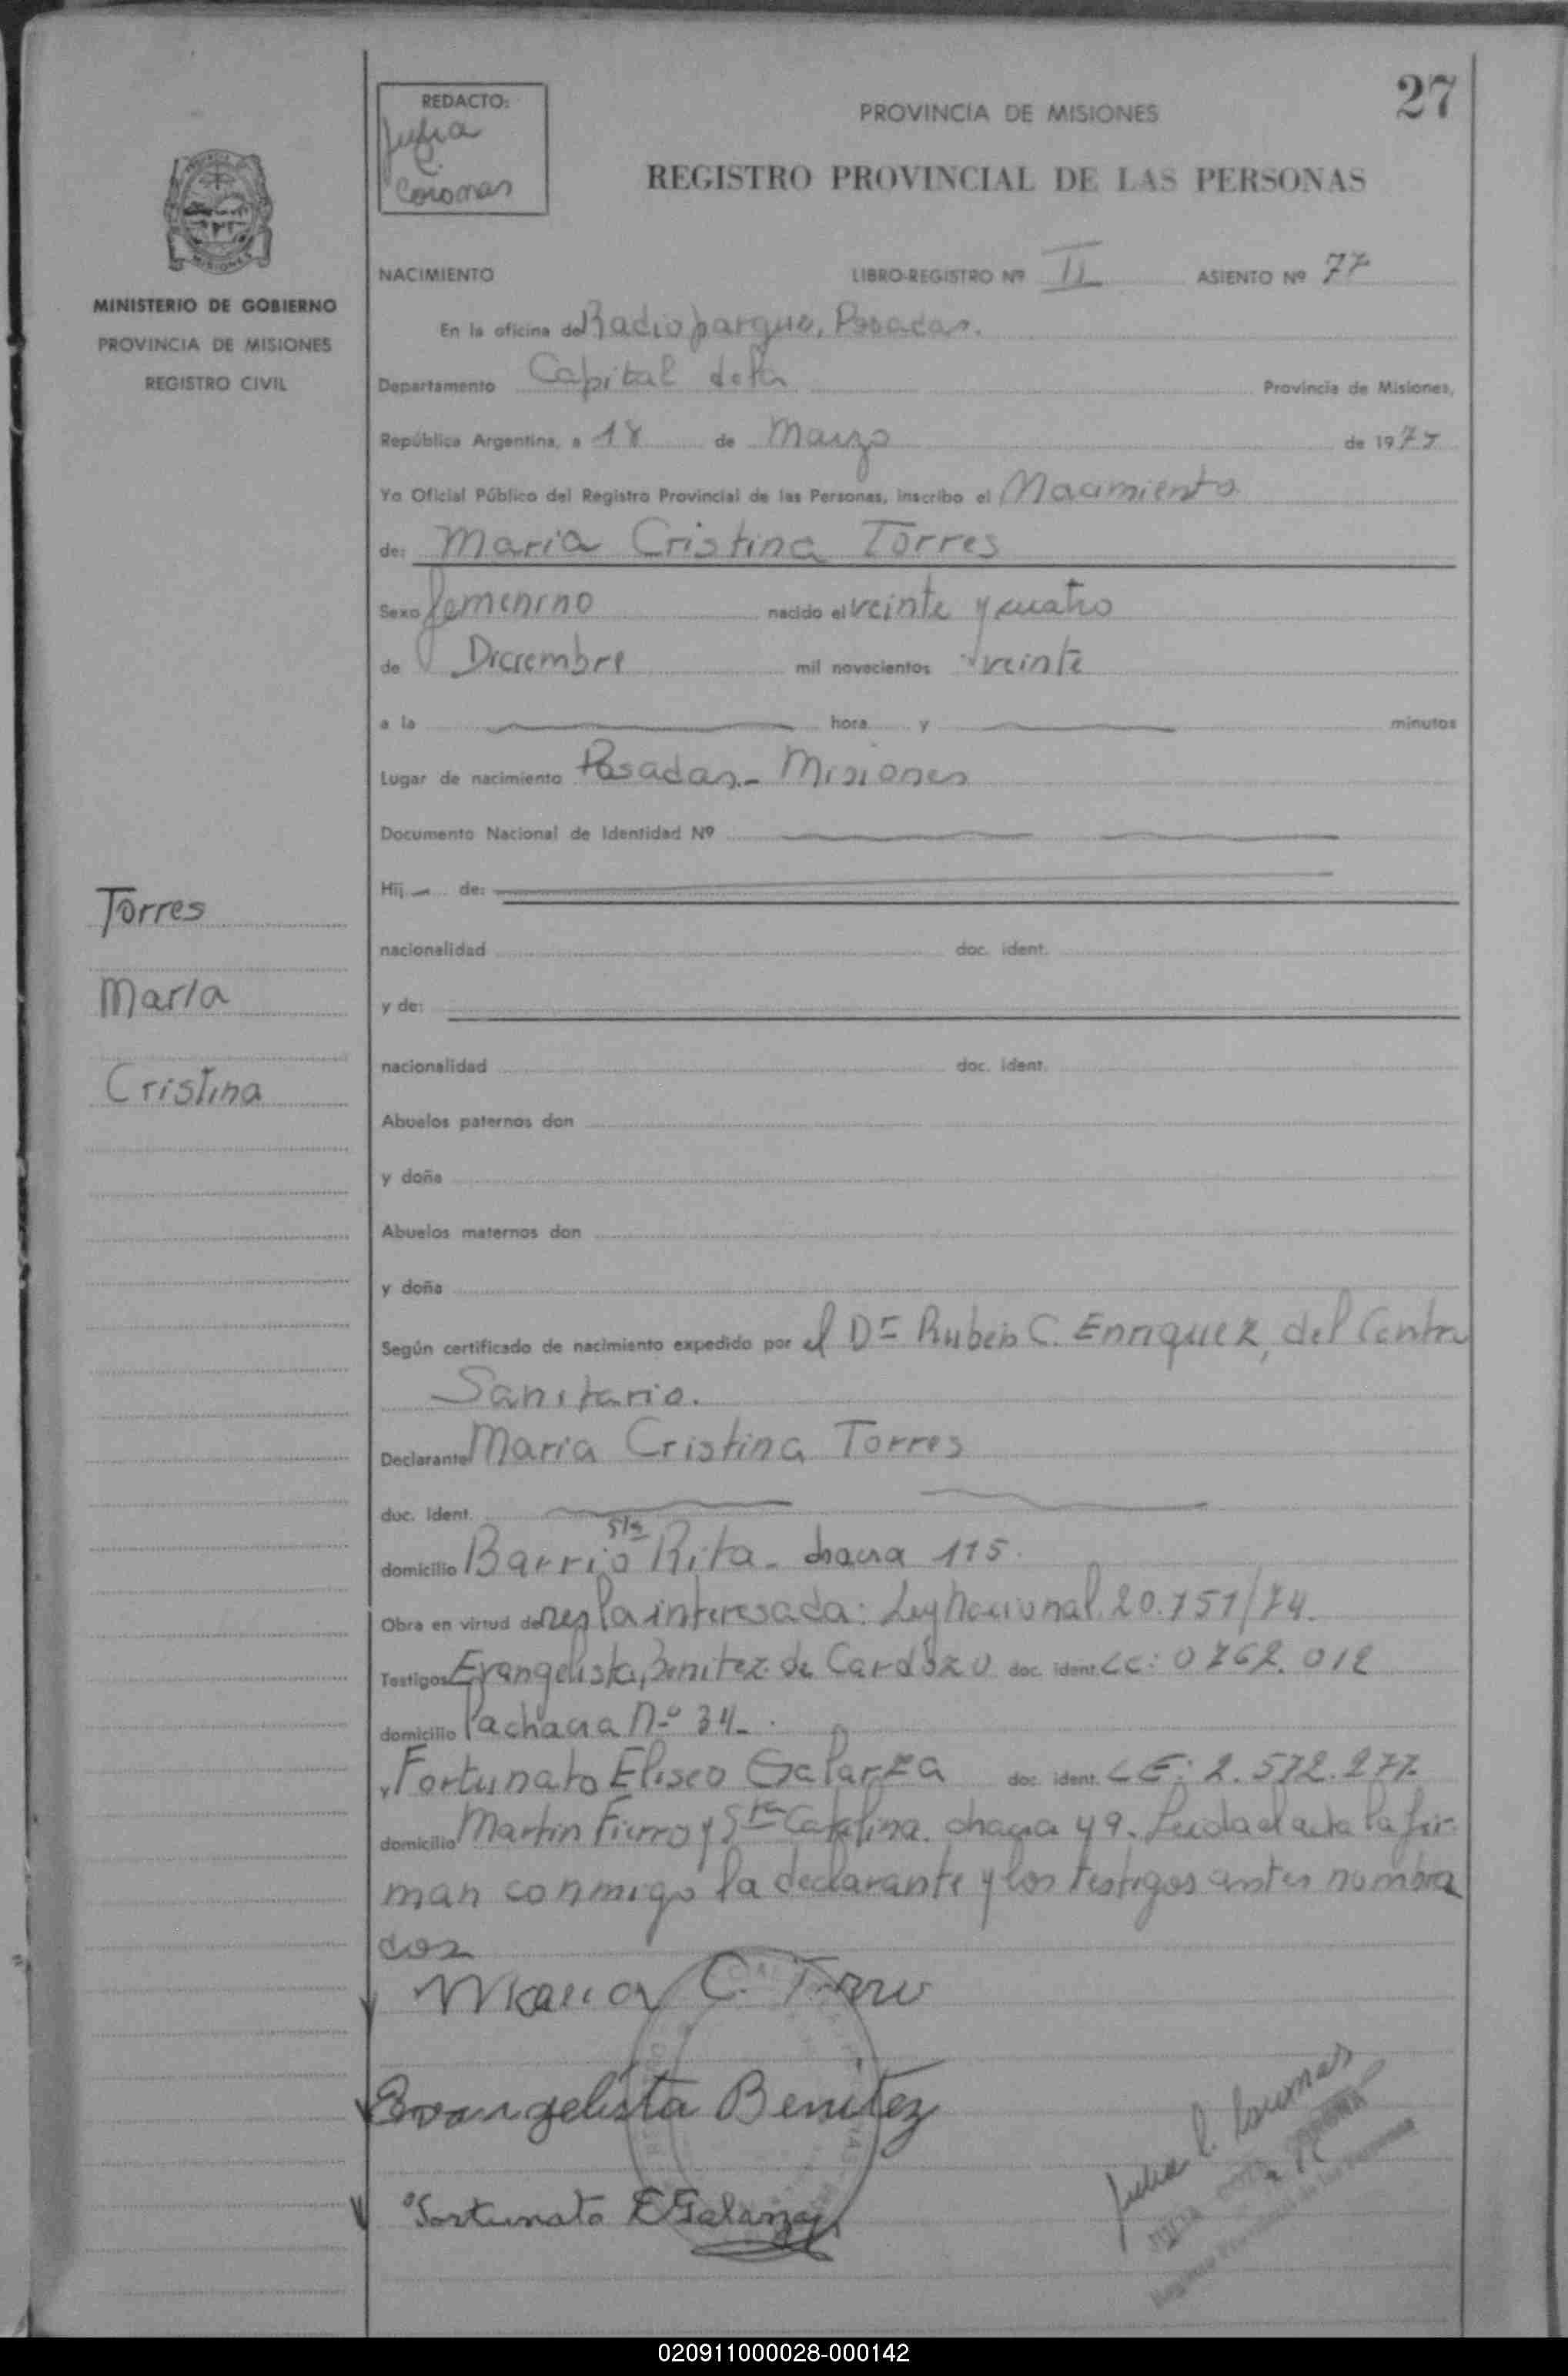 27
REDACTO:
Julia
C.
Coromas
PROVINCIA DE MISIONES
REGISTRO PROVINCIAL DE LAS PERSONAS
MISIONES
MINISTERIO DE GOBIERNO
PROVINCIA DE MISIONES
REGISTRO CIVIL
NACIMIENTO LIBRO-REGISTRO Nº II ASIENTO Nº 77
En la oficina de Radioparque, Posadas.
Departamento Capital de la Provincia de Misiones,
República Argentina, a 18 de Marzo de 1975
Yo Oficial Público del Registro Provincial de las Personas, inscribo el Nacimiento
de: Maria Cristina Torres
Sexo femenino nacido el veinte y cuatro
de Diciembre mil novecientos veinte
a la hora y minutos
Lugar de nacimiento Posadas.- Misiones
Documento Nacional de Identidad Nº
Hij de:
Torres
nacionalidad doc. ident.
Maria
y de:
nacionalidad doc. ident.
Cristina
Abuelos paternos don
y doña
Abuelos maternos don
y doña
Según certificado de nacimiento expedido por el Dr Ruben C. Enriquez, del Centro
Sanitario.
Declarante Maria Cristina Torres
doc. Ident.
domicilio Barrio Sta Rita - chacra 115.
Obra en virtud de ser la interesada: Ley Nacional 20.751/74.
Testigos Evangelista, Benitez de Cardozo doc. ident. LC: 0762.012
domicilio la chacra Nº 34.
y Fortunato Eliseo Galarza doc. ident. LE: 2.572.277.
domicilio Martin Fierro y Sta Catalina. chacra 49. Leida el acta la fir-
man conmigo la declarante y los testigos antes nombra
dos
Maria C. Torres
Evangelista Benitez
Julia C. Coromas
Fortunato E Galarza
020911000028-000142